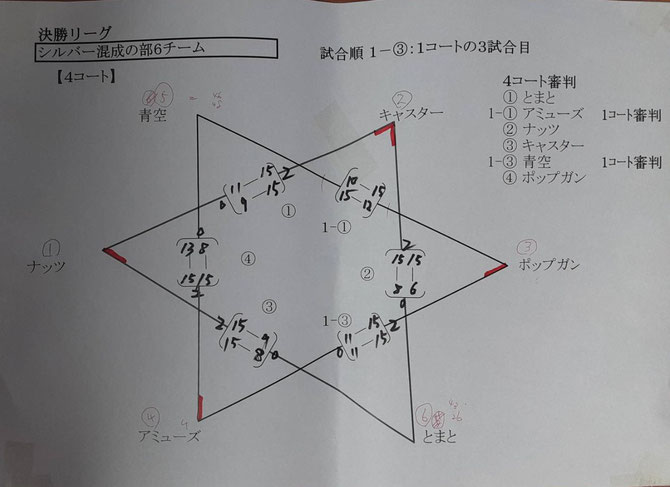 決勝リーグ
シルバー混成の部6チーム
試合順 1-③:1コートの3試合目
【4コート】
4コート審判
① とまと
1-① アミューズ 1コート審判
② ナッツ
③ キャスター
1-③ 青空 1コート審判
④ ポップガン
⑤
青空
②
キャスター
11-15 2
0 9-15
①
10-15
15-12
1-①
①
ナッツ
0
13 8
15 15
2
④
2
15 15
8 6
0
②
③
ポップガン
③
2 15-9
15-8 0
1-③
11-15 2
0 11-15
④
アミューズ
4
⑥
とまと